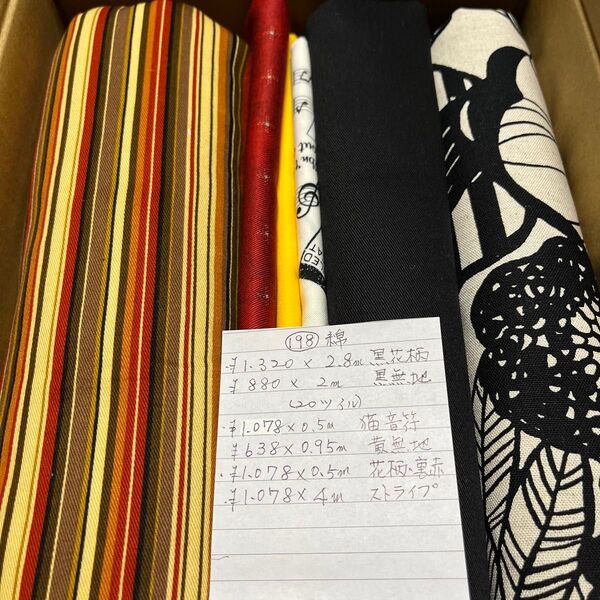 198 綿
¥1.320×2.8m 黒花柄
¥880×2m 黒無地
(20ツイル)
¥1.078×0.5m 猫音符
¥638×0.95m 黄無地
¥1.078×0.5m 花柄.裏赤
¥1.078×4m ストライプ